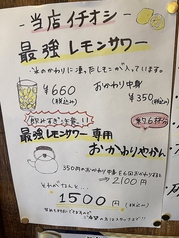 - 当店イチオシ -
最強レモンサワー
氷のかわりに凍ったレモンが入っています。
¥660
(税込み)
おかわり中身
¥350(税込み)
飲みすぎ注意!!
約7.6杯分
最強レモンサワー専用
おかわりやかん
350円のおかわり中身を6回おかわりすると
→2100円
それがなんと...
1500円(税込み)